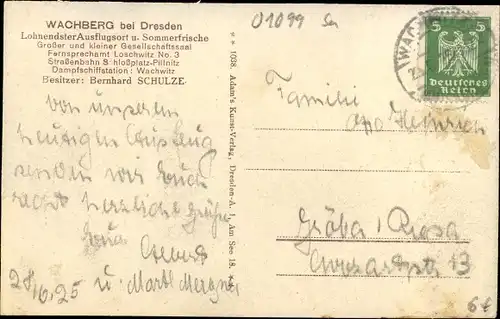 WACHBERG bei Dresden
Lohnendster Ausflugsort u. Sommerfrische
Großer und kleiner Gesellschaftssaal
Fernsprechamt Loschwitz No. 3
Straßenbahn S hloßplatz-Pillnitz
Dampfschiffstation: Wachwitz
Besitzer: Bernhard SCHULZE.
von unserem
heutigen Ausflug
senden wir Euch
recht herzliche Grüße
Eure
u. Martl
28/6.25
* * 1038. Adam's Kunst-Verlag, Dresden-A. 1, Am See 18.
01099
5 5
Deutsches
Reich
Familie
Heinrich
Gröba, Riesa
13
6€